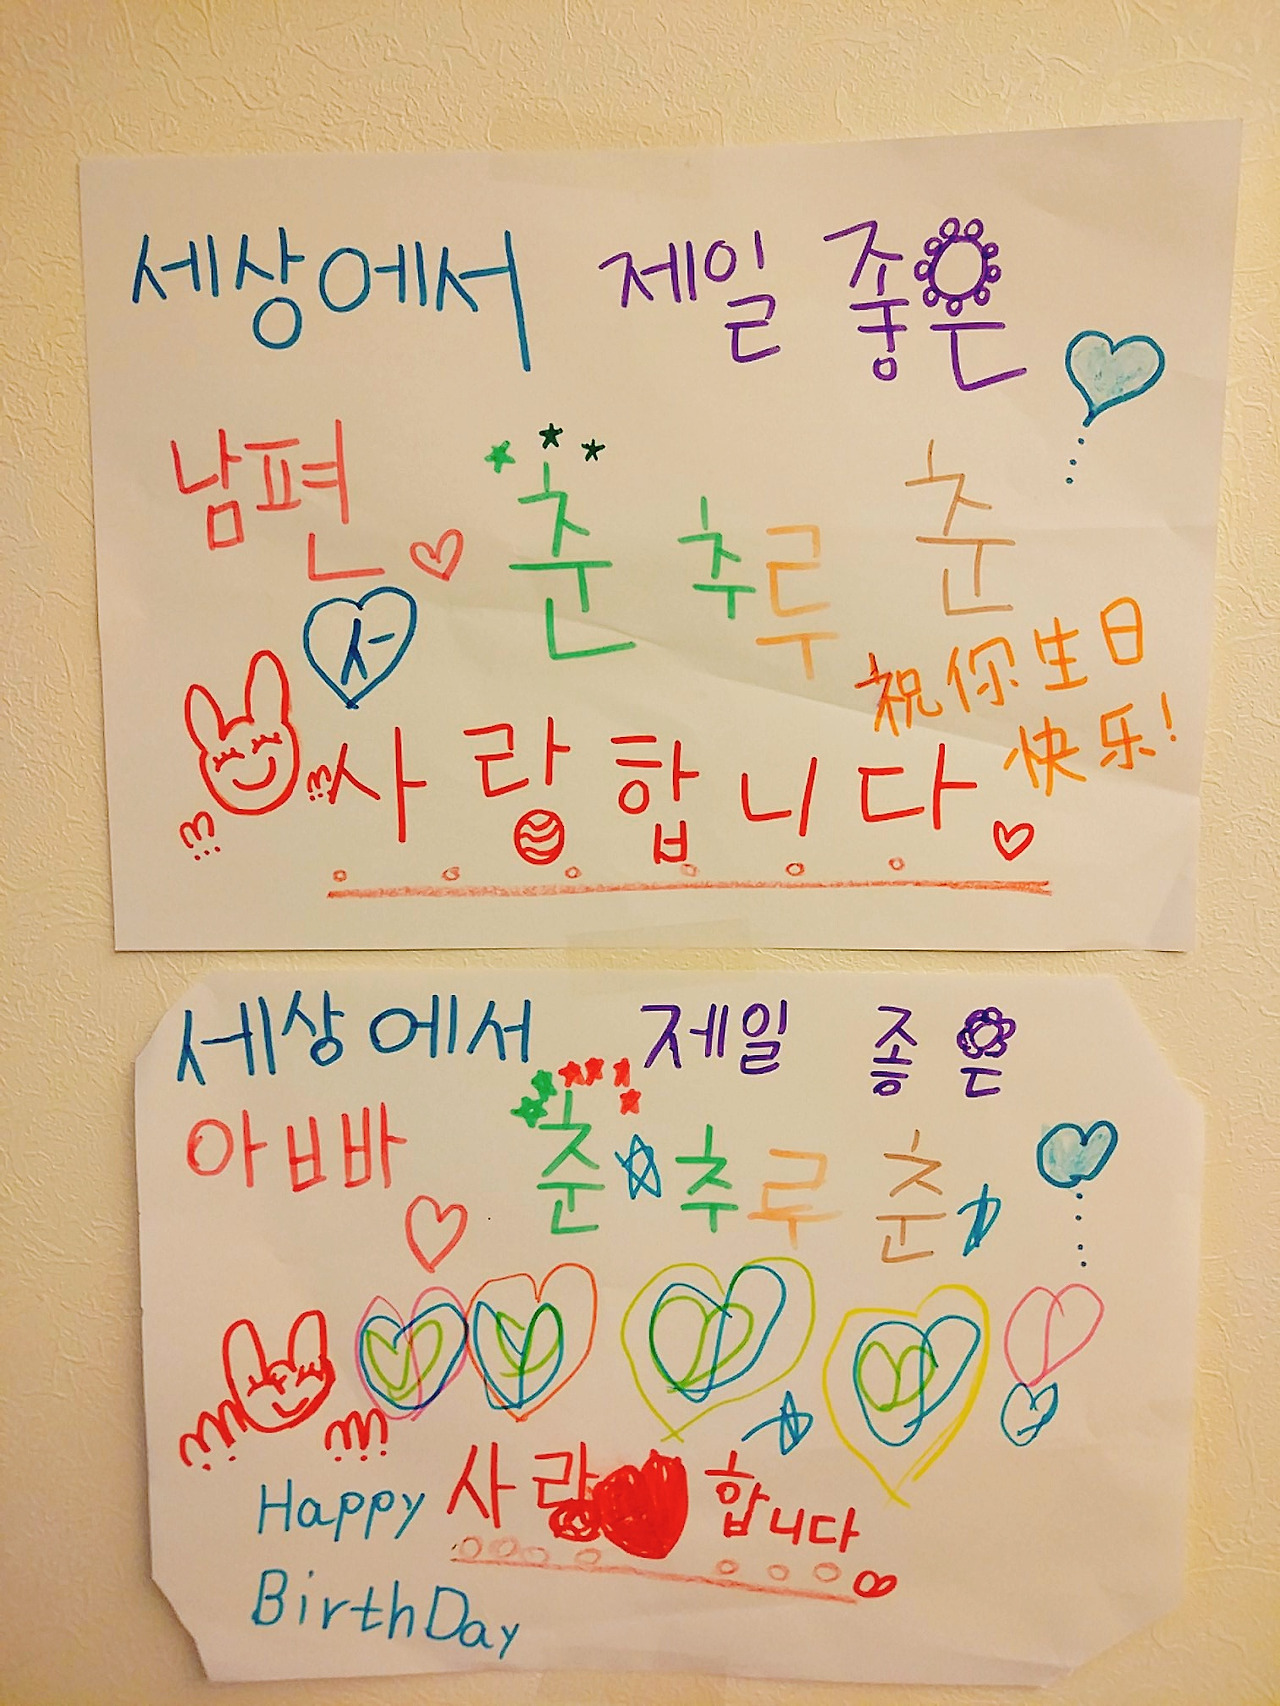 세상에서 제일 좋은
남편 춘 추루 춘
사
祝你生日
快乐!
사랑합니다
세상에서 제일 좋은
아빠 춘 추루 춘
사랑 합니다
Happy
BirthDay